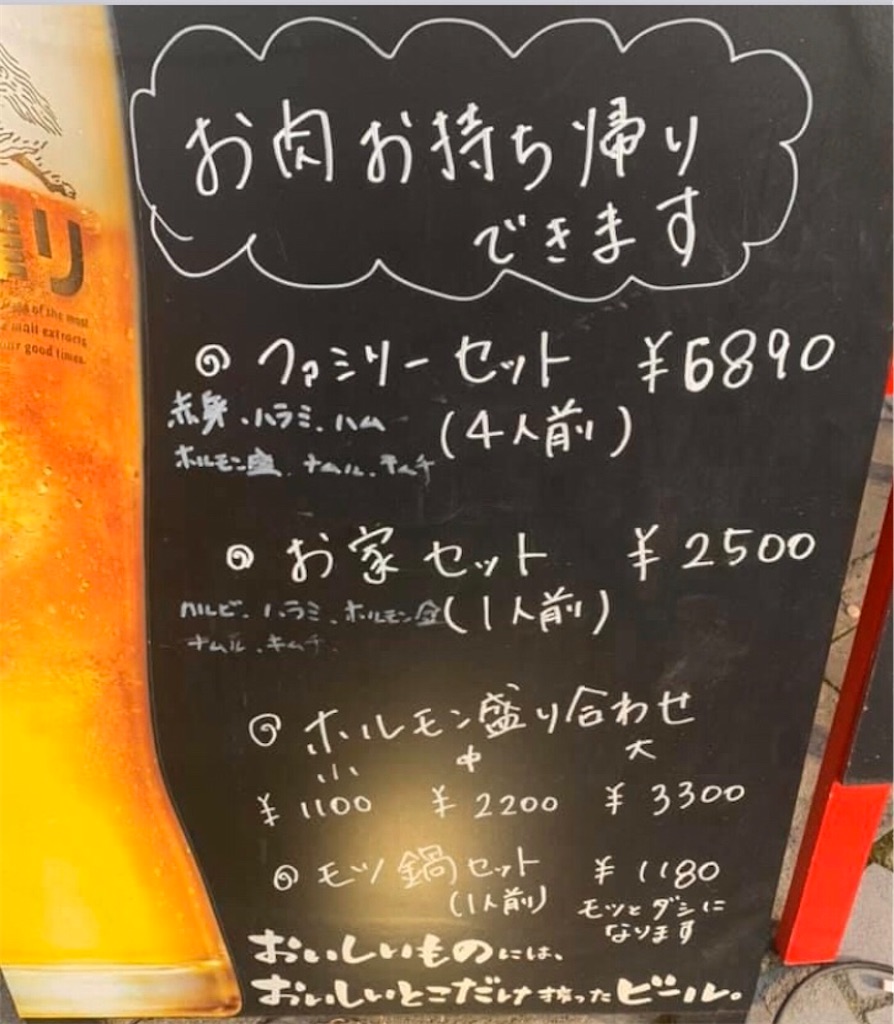 お肉お持ち帰り
できます
ファミリーセット ¥6890
赤身、ハラミ、ハム
(4人前)
ホルモン盛、ナムル、キムチ
お家セット ¥2500
カルビ、ハラミ、ホルモン
(1人前)
ナムル、キムチ
ホルモン盛り合わせ
小 中 大
¥1100 ¥2200 ¥3300
モツ鍋セット ¥1180
(1人前) モツとダシに
なります
おいしいものには、
おいしいとこだけ搾ったビール。
搾り
of the most
malt extracts
good times.